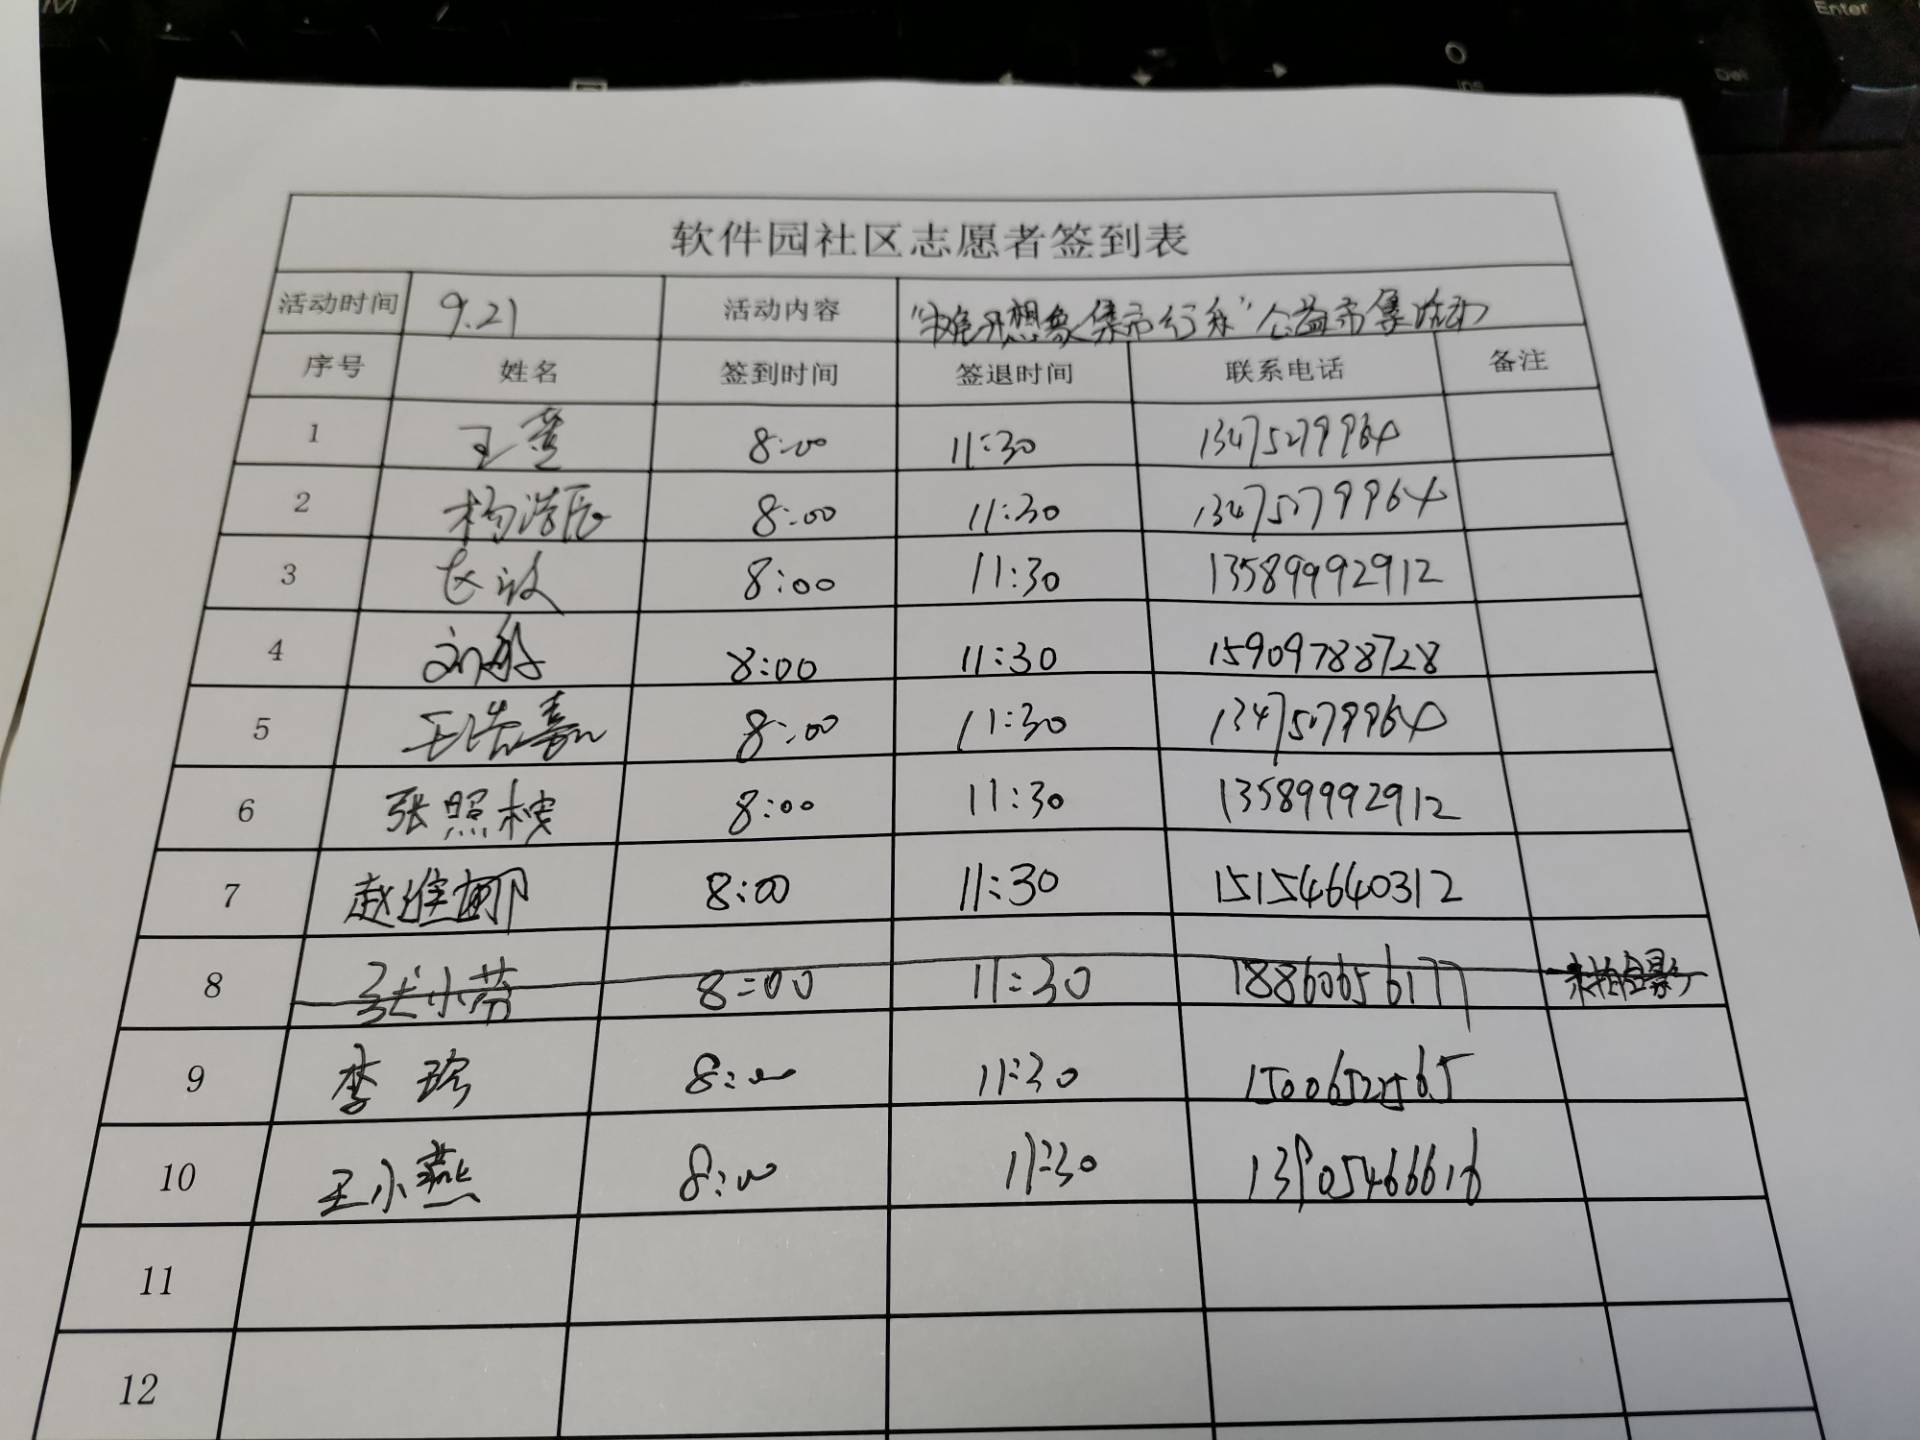 软件园社区志愿者签到表
活动时间 9.21 活动内容 "摊开想象 集市行乐"公益市集活动
序号 姓名 签到时间 签退时间 联系电话 备注
1 王萱 8:00 11:30 13475079964
2 杨浩辰 8:00 11:30 13475079964
3 8:00 11:30 13589992912
4 刘彤 8:00 11:30 15909788728
5 王浩嘉 8:00 11:30 13475079964
6 张照 8:00 11:30 13589992912
7 赵维娜 8:00 11:30 15154640312
8 张小芬 8:00 11:30 18860656177 未拍合影
9 李珍 8:00 11:30 15006522565
10 王小燕 8:00 11:30 13905466616
11
12
Enter
Del
Ins